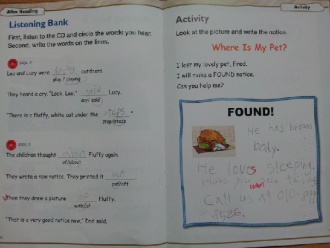 After Reading
Listening Bank
First, listen to the CD and circle the words you hear.
Second, write the words on the lines.
Leo and Lucy were outdoors.
They heard a cry. "Look, Leo," said Lucy.
say/ said
"There is a fluffy, white cat under the steps."
steps/stairs
The children thought Fluffy again.
They wrote a new notice. They printed it out.
out/off
Then they drew a picture
"That is a very good notice now," Dad said.
Activity
Activity
Look at the picture and write the notice.
Where Is My Pet?
I lost my lovely pet, Fred.
I will make a FOUND notice.
Can you help me?
FOUND!
He has brown
He loves sleeping.
Call us at 010-